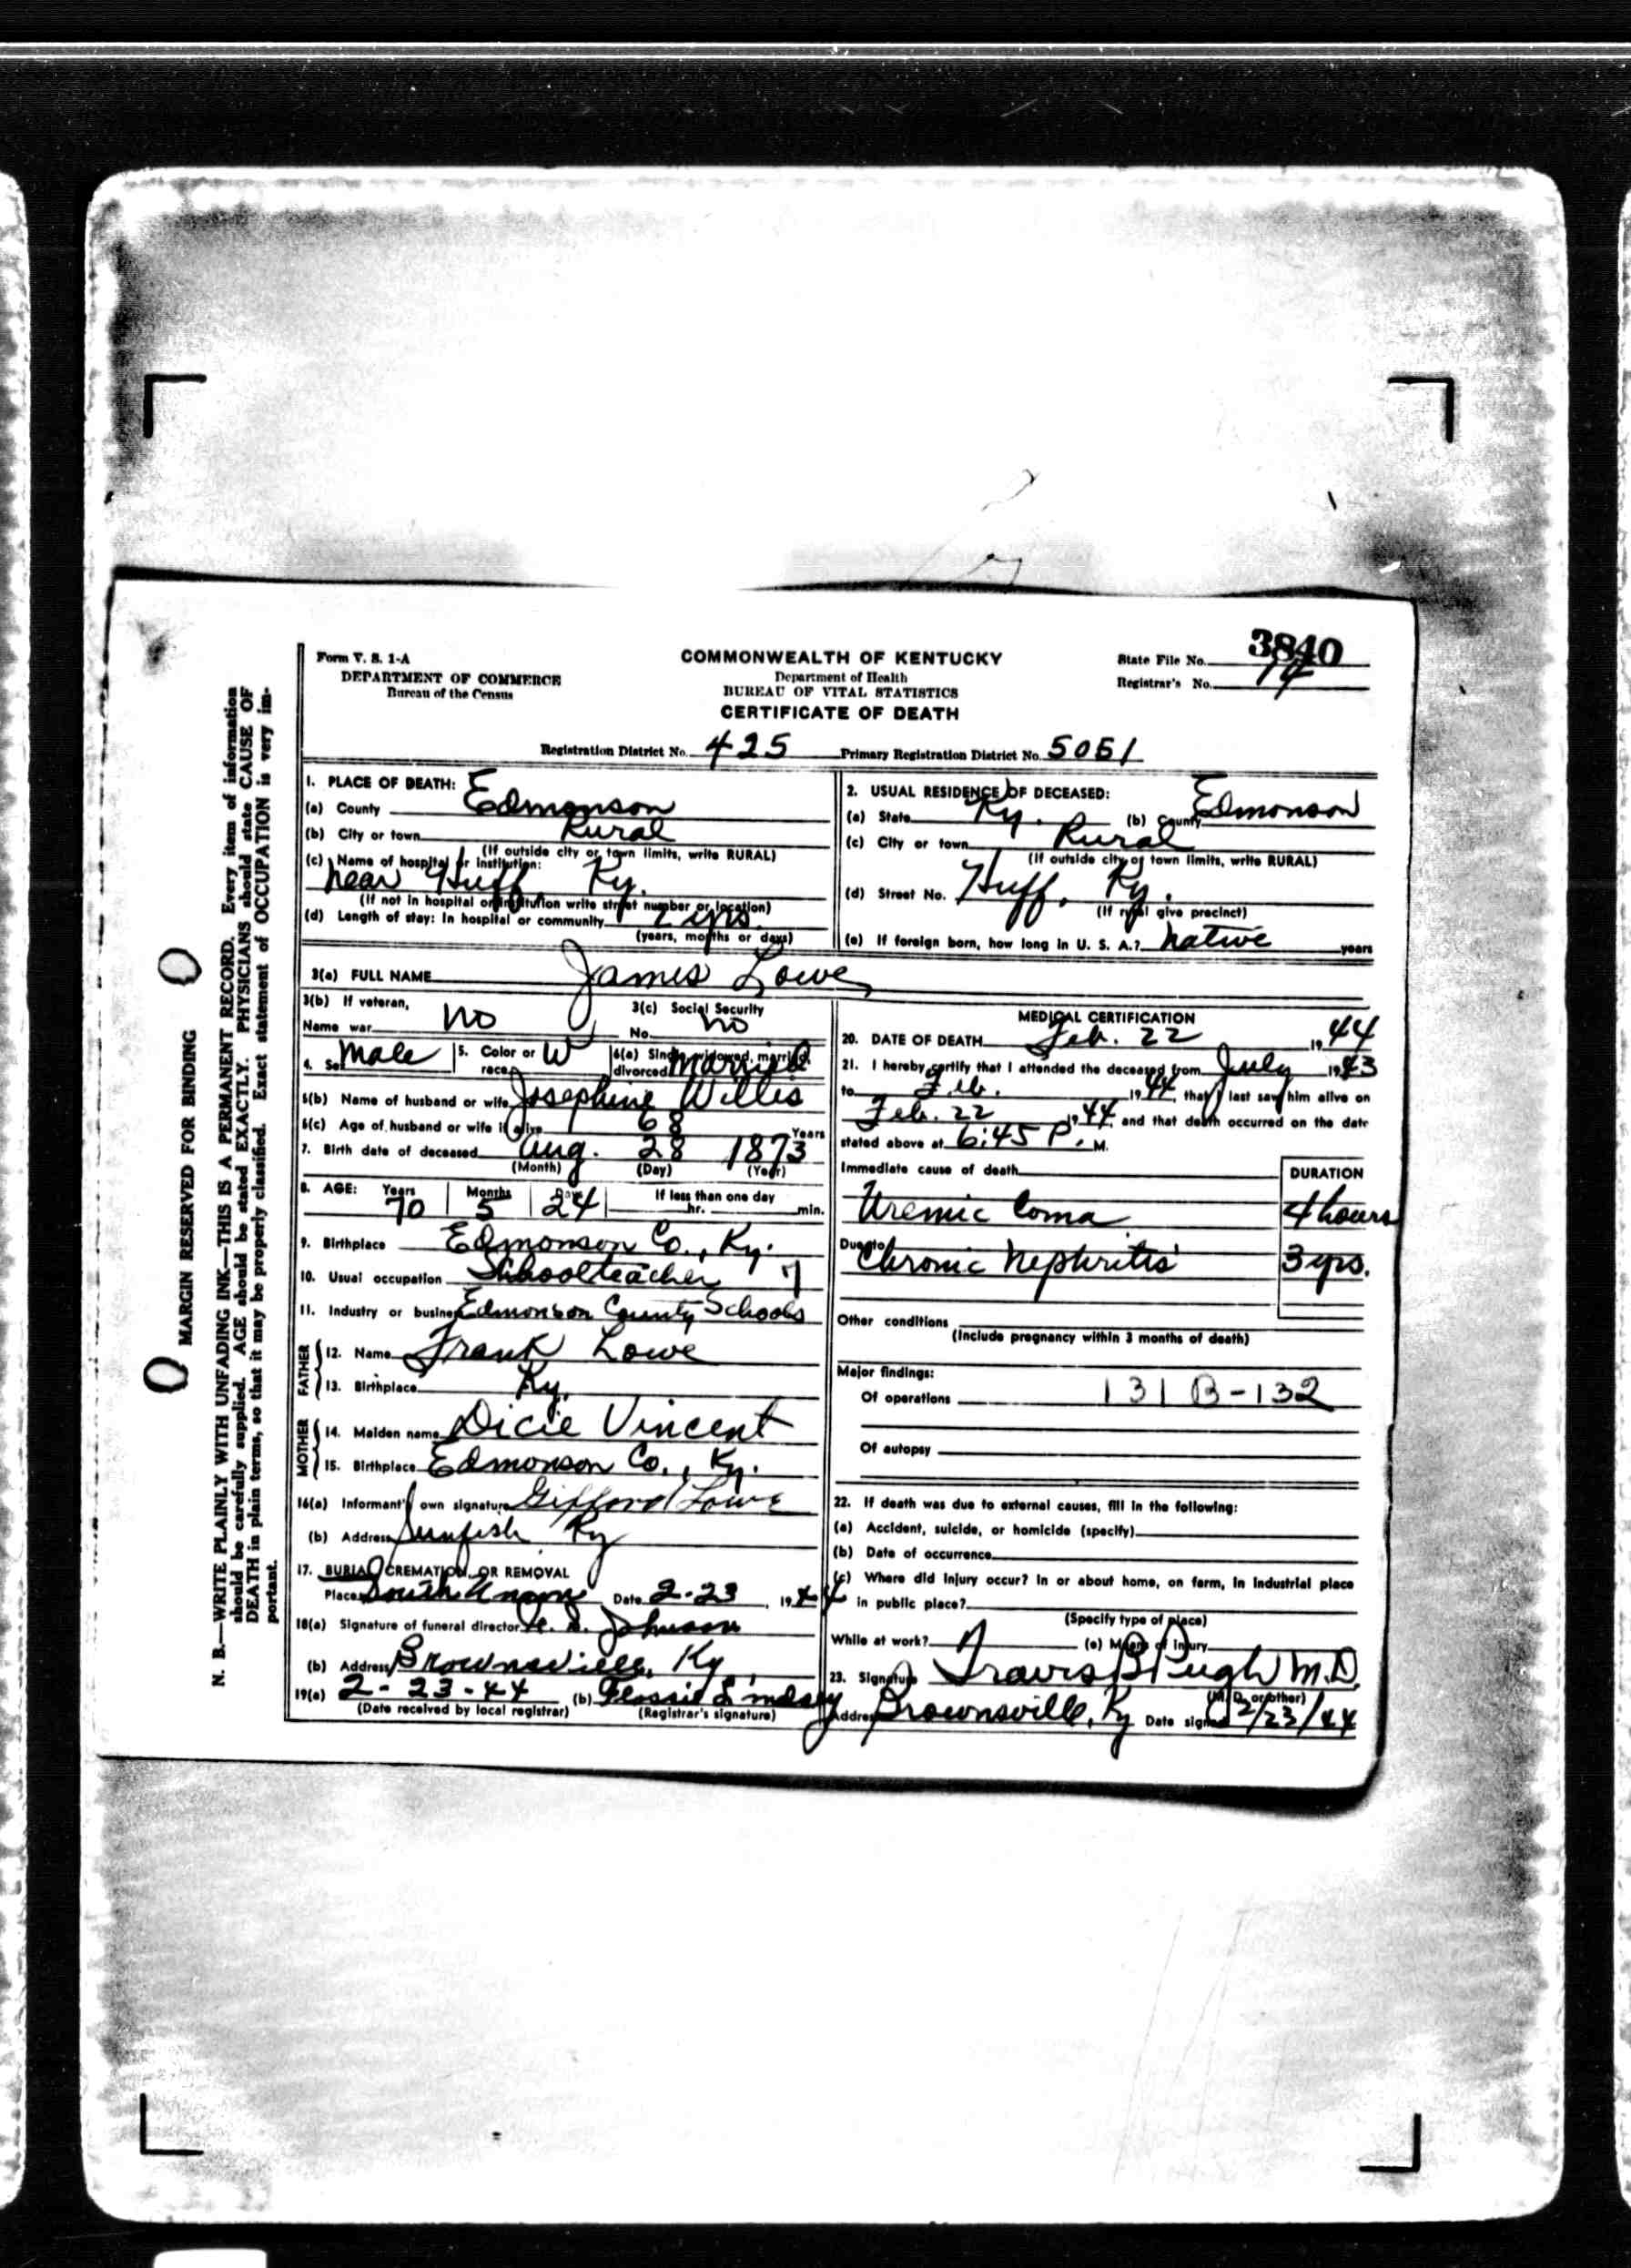 3840
Form V. S. 1-A
COMMONWEALTH OF KENTUCKY
State File No.
DEPARTMENT OF COMMERCE
Department of Health
Registrar's No. 14
Bureau of the Census
BUREAU OF VITAL STATISTICS
CERTIFICATE OF DEATH
Registration District No. 425 Primary Registration District No. 5051
1. PLACE OF DEATH:
(a) County Edmonson
(b) City or town Rural
(If outside city or town limits, write RURAL)
(c) Name of hospital or institution:
near Huff, Ky.
(If not in hospital or institution write street number or location)
(d) Length of stay: In hospital or community 2 yrs.
(years, months or days)
2. USUAL RESIDENCE OF DECEASED:
(a) State Ky. (b) County Edmonson
(c) City or town Rural
(If outside city or town limits, write RURAL)
(d) Street No. Huff, Ky.
(If rural give precinct)
(e) If foreign born, how long in U. S. A.? native years
3(a) FULL NAME James Lowe
3(b) If veteran,
Name war no
3(c) Social Security
No. no
4. Sex Male 5. Color or race W 6(a) Single, widowed, married, divorced Married
6(b) Name of husband or wife Josephine Willis
6(c) Age of husband or wife if alive 68 Years
7. Birth date of deceased Aug. 28 1873
(Month) (Day) (Year)
8. AGE: Years Months Days If less than one day
70 5 24 hr. min.
9. Birthplace Edmonson Co., Ky.
10. Usual occupation Schoolteacher 7
11. Industry or business Edmonson County Schools
FATHER
12. Name Frank Lowe
13. Birthplace Ky.
MOTHER
14. Maiden name Dicie Vincent
15. Birthplace Edmonson Co., Ky.
16(a) Informant's own signature Gifford Lowe
(b) Address Sunfish Ky
17. BURIAL, CREMATION, OR REMOVAL
Place South Union Date 2-23, 1944
18(a) Signature of funeral director Johnson
(b) Address Brownsville, Ky
19(a) 2-23-44 (b) Flossie Lindsey
(Date received by local registrar) (Registrar's signature)
MEDICAL CERTIFICATION
20. DATE OF DEATH Feb. 22 1944
21. I hereby certify that I attended the deceased from July 1943
to Feb. 1944, that I last saw him alive on
Feb. 22 1944, and that death occurred on the date
stated above at 6:45 P. M.
Immediate cause of death DURATION
Uremic Coma 4 hours
Due to
Chronic Nephritis 3 yrs.
Other conditions
(Include pregnancy within 3 months of death)
Major findings:
Of operations 131 B-132
Of autopsy
22. If death was due to external causes, fill in the following:
(a) Accident, suicide, or homicide (specify)
(b) Date of occurrence
(c) Where did injury occur? In or about home, on farm, in industrial place
in public place?
(Specify type of place)
While at work? (e) Means of injury
23. Signature Travis B Pugh M.D.
(M. D. or other)
Address Brownsville, Ky Date signed 2/23/44
MARGIN RESERVED FOR BINDING
N. B.—WRITE PLAINLY WITH UNFADING INK—THIS IS A PERMANENT RECORD. Every item of information
should be carefully supplied. AGE should be stated EXACTLY. PHYSICIANS should state CAUSE OF
DEATH in plain terms, so that it may be properly classified. Exact statement of OCCUPATION is very im-
portant.